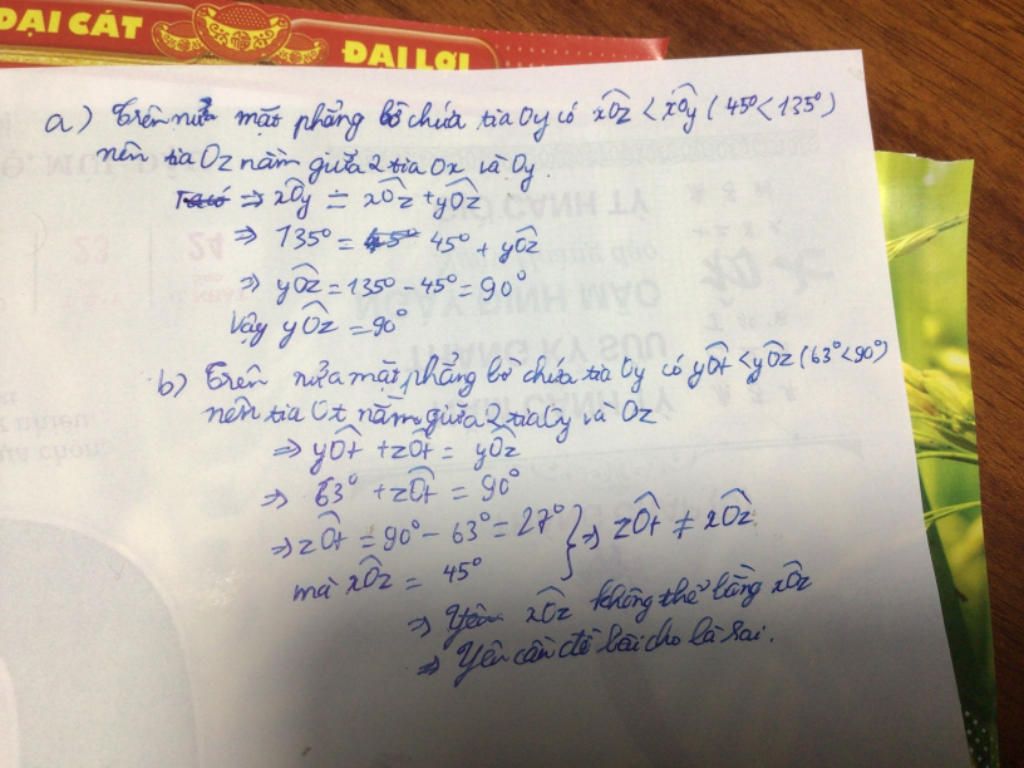 ĐẠI CÁT
ĐẠI LỢI
a) Trên nửa mặt phẳng bờ chứa tia Oy có xÔz < xÔy (45° < 135°)
nên tia Oz nằm giữa 2 tia Ox và Oy.
⇒ xÔy = xÔz + yÔz
⇒ 135° = 45° + yÔz
⇒ yÔz = 135° - 45° = 90°
Vậy yÔz = 90°
b) Trên nửa mặt phẳng bờ chứa tia Oy có yÔt < yÔz (63° < 90°)
nên tia Ot nằm giữa 2 tia Oy và Oz
⇒ yÔt + zÔt = yÔz
⇒ 63° + zÔt = 90°
⇒ zÔt = 90° - 63° = 27° } ⇒ zÔt ≠ xÔz
mà xÔz = 45°
⇒ xÔz không thể bằng xÔz
⇒ Yêu cầu đề bài cho là sai.
23
24